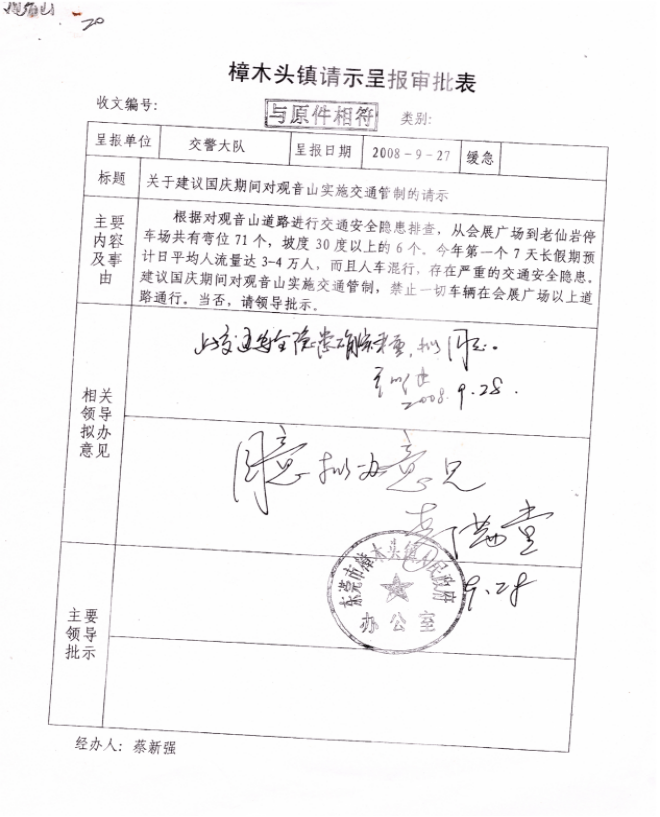 20
樟木头镇请示呈报审批表
收文编号:
与原件相符
类别:
呈报单位 交警大队 呈报日期 2008-9-27 缓急
标题 关于建议国庆期间对观音山实施交通管制的请示
主要内容及事由
根据对观音山道路进行交通安全隐患排查，从会展广场到老仙岩停
车场共有弯位71个，坡度30度以上的6个。今年第一个7天长假期预
计日平均人流量达3-4万人，而且人车混行，存在严重的交通安全隐患。
建议国庆期间对观音山实施交通管制，禁止一切车辆在会展广场以上道
路通行。当否，请领导批示。
相关领导拟办意见
交通安全隐患 拟同意。
2008.9.28.
同意拟办意见
9.28
东莞市樟木头镇人民政府
办公室
主要领导批示
经办人：蔡新强